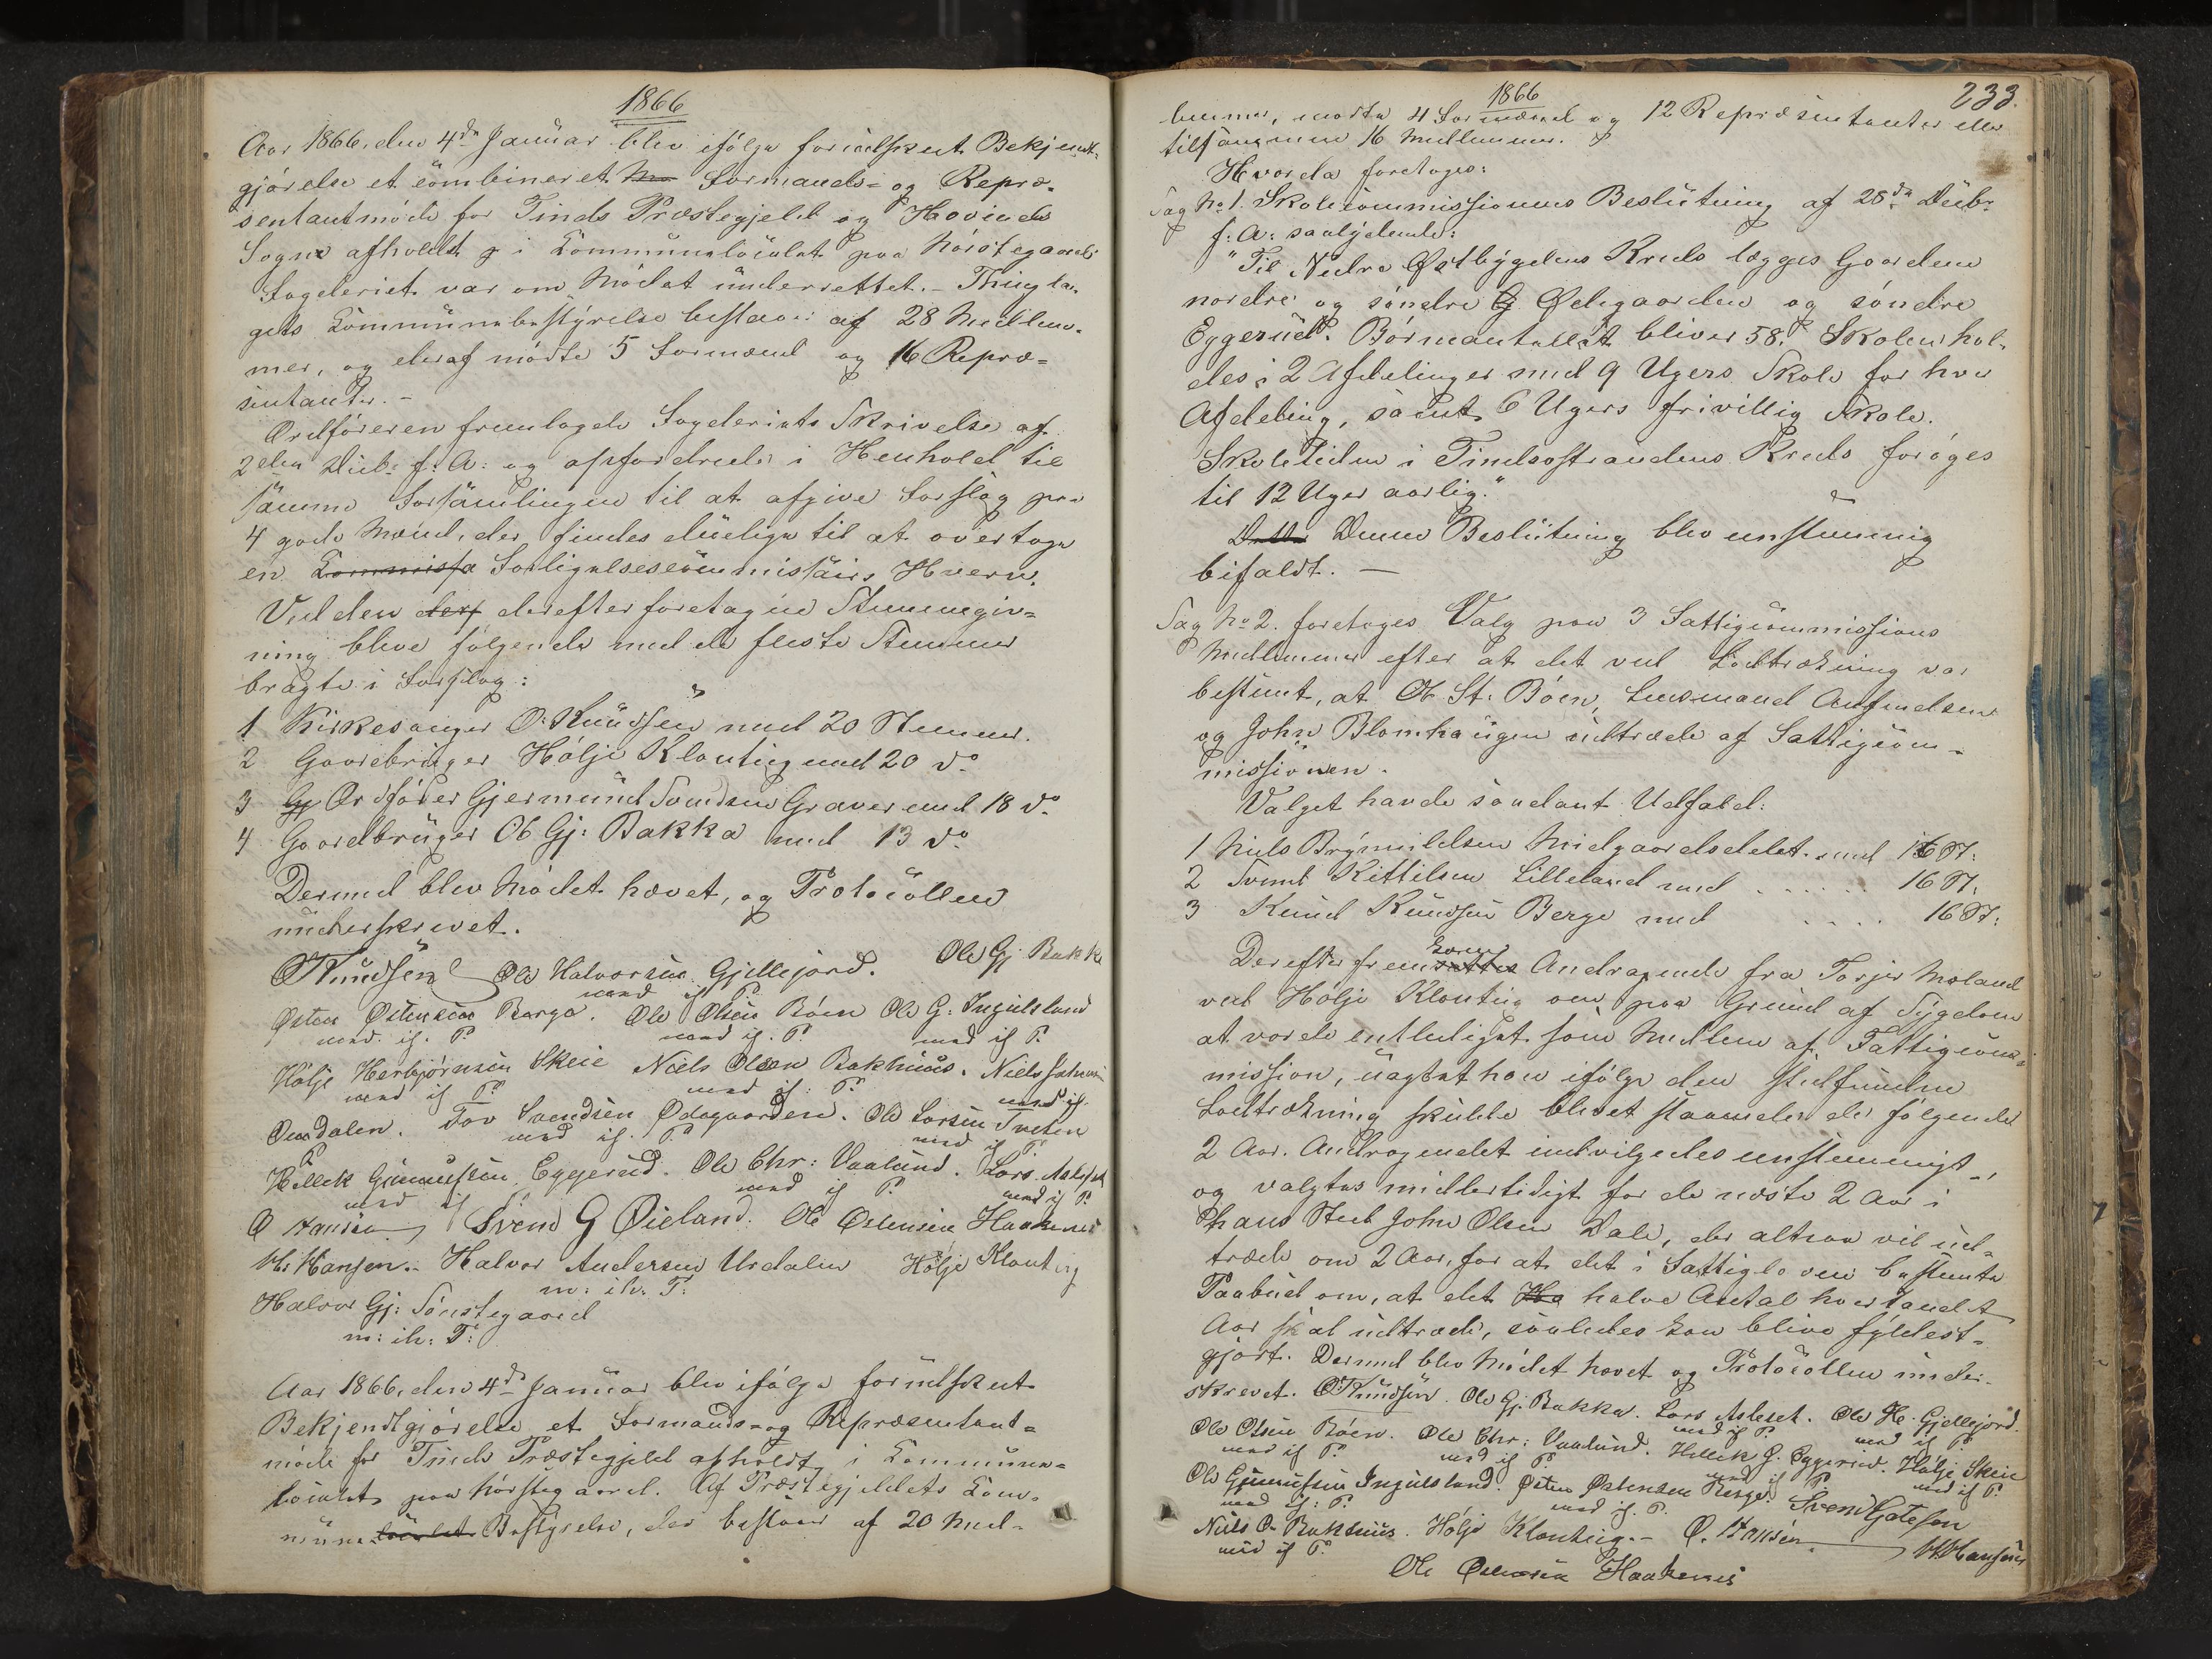 1866
Aar 1866, den 4de Januar blev ifølge forudskeet Bekjendt-
gjørelse et combineret Formands- og Repræ-
sentantmøde for Tinds Præstegjeld og Hovinds
Sogne afholdt i Communelocalet paa Hørstegaard.
Fogderiet var om Mødet underrettet. - Thingla-
gets Communebestyrelse bestaar af 28 Medlem-
mer, og deraf mødte 5 Formænd og 16 Repræ-
sentanter. -
Ordføreren fremlagde Fogderiets Skrivelse af
2den Decbr f: A: og opfordrede i Henhold til
samme Forsamlingen til at afgive Forslag paa
4 gode Mænd, der findes duelige til at overtage
en Commissa Forligelsescommissairs Hverv.
Ved den derf derefter foretagne Stemmegiv-
ning bleve følgende med de fleste Stemmer
bragte i Forslag:
1 Kirkesanger O. Knudsen med 20 Stemmer.
2 Gaardbruger Hølje Klonteig med 20 do
3 Gj Ordfører Gjermund Svendsen Graver med 18 do
4 Gaardbruger Ole Gj: Bakka med 13 do
Dermed blev Mødet hævet, og Protocollen
underskrevet.
O Knudsen Ole Halvorsen Gjellejord. Ole Gj Bakka
med if P.
Østen Østensen Berge. Ole Olsen Bøen Ole G: Ingulsland
med if. P. med if. P. med if P.
Hølje Herbjørnsen Skeie Niels Olsen Bakhuus. Niels
med if P. med if: P. med if.
Omdalen. Tov Svendsen Ødegaarden. Ole Larsen Tveten
P med if. P. med if P.
Hellek Gunnufsen Eggerud. Ole Chr: Vaalund. Lars Aslesen
med if med if P. med if P.
O Hansen Svend G Øieland. Ole Østensen Haakenes
H. Hansen. - Halvor Andersen Urdalen Hølje Klonteig
m: ih. P.
Halvor Gj: Sønstegaard
m: ih: P.
Aar 1866, den 4de Januar blev ifølge forudskeet
Bekjendtgjørelse et Formands- og Repræsentant-
møde for Tinds Præstegjeld afholdt i Commune-
localet paa Hørstegaard. Af Præstegjeldets Com-
mune localet Bestyrelse, der bestaar af 20 Med-
1866
233.
lemmer, mødte 4 Formænd og 12 Repræsentanter eller
tilsammen 16 Medlemmer.
Hvorda foretoges:
Sag No 1. Skolecommissionens Beslutning af 28de Decbr
f: A: saalydende:
"Til Nedre Østbygdens Kreds lægges Gaardene
nordre og søndre Ødegaarden og søndre
Eggerud. Børneantallet bliver 58. Skolen hol-
des i 2 Afdelinger med 9 Ugers Skole for hver
Afdeling, samt 6 Ugers frivillig Skole.
Skoletiden i Tindsostrandens Kreds forøges
til 12 Uger aarlig."
Denne Beslutning blev enstemmig
bifaldt. -
Sag No 2. foretoges Valg paa 3 Fattigcommissions
Medlemmer efter at det ved Lodtrækning var
bestemt, at Ole St: Bøen, Lensmand Anfindsen
og John Blomhaugen udtræde af Fattigcom-
missionen.
Valget havde saadant Udfald:
1 Niels Brynnildsen Midgaardsdalet med 16 St:
2 Svend Kittilsen Lilleland med . . . . . . 16 St:
3 Knud Knudsen Berge med . . . . 16 St:
kom
Derefter fremsattes Andragende fra Torjer Moland
ved Hølje Klonteig om paa Grund af Sygdom
at vorde entlediget som Medlem af Fattigcom-
mission, uagtet han ifølge den stedfundne
Lodtrækning skulde blevet staaende de følgende
2 Aar. Andragendet indvilgedes enstemmigt -,
og valgtes midlertidigt for de næste 2 Aar i
hans Sted John Olsen Dale, der altsaa vil ud-
træde om 2 Aar, for at det i Fattigloven bestemte
Paabud om, at det halve Antal hvertandet
Aar skal udtræde, saaledes kan blive fyldest-
gjort. Dermed blev Mødet hævet og Protocollen under-
skrevet. O Knudsen. Ole Gj. Bakka. Lars Aslesen. Ole H. Gjellejord.
med if P. med if P.
Ole Olsen Bøen. Ole Chr: Vaalund. Hellek G. Eggerud. Hølje Skeie
med if P. med if P. med if P. med if P.
Ole Gunnufsen Ingulsland. Østen Østensen Berge. Svend Gjotesen
med if: P. med if. P.
Niels O. Bakhuus. Hølje Klonteig. - O. Hansen H Hansen
med if P.
Ole Østensen Haakenes